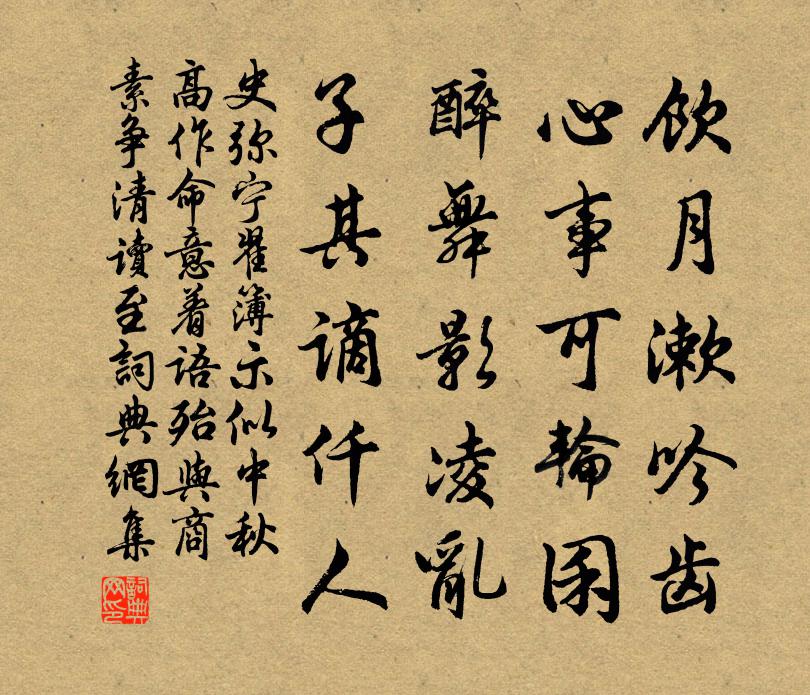 飲月漱吟齿
心事可輪囷
醉舞影凌亂
子其謫仟人
史弥宁翟簿示似中秋
高作命意着語殆與商
素争清讀至詞典網集
詞典
网印